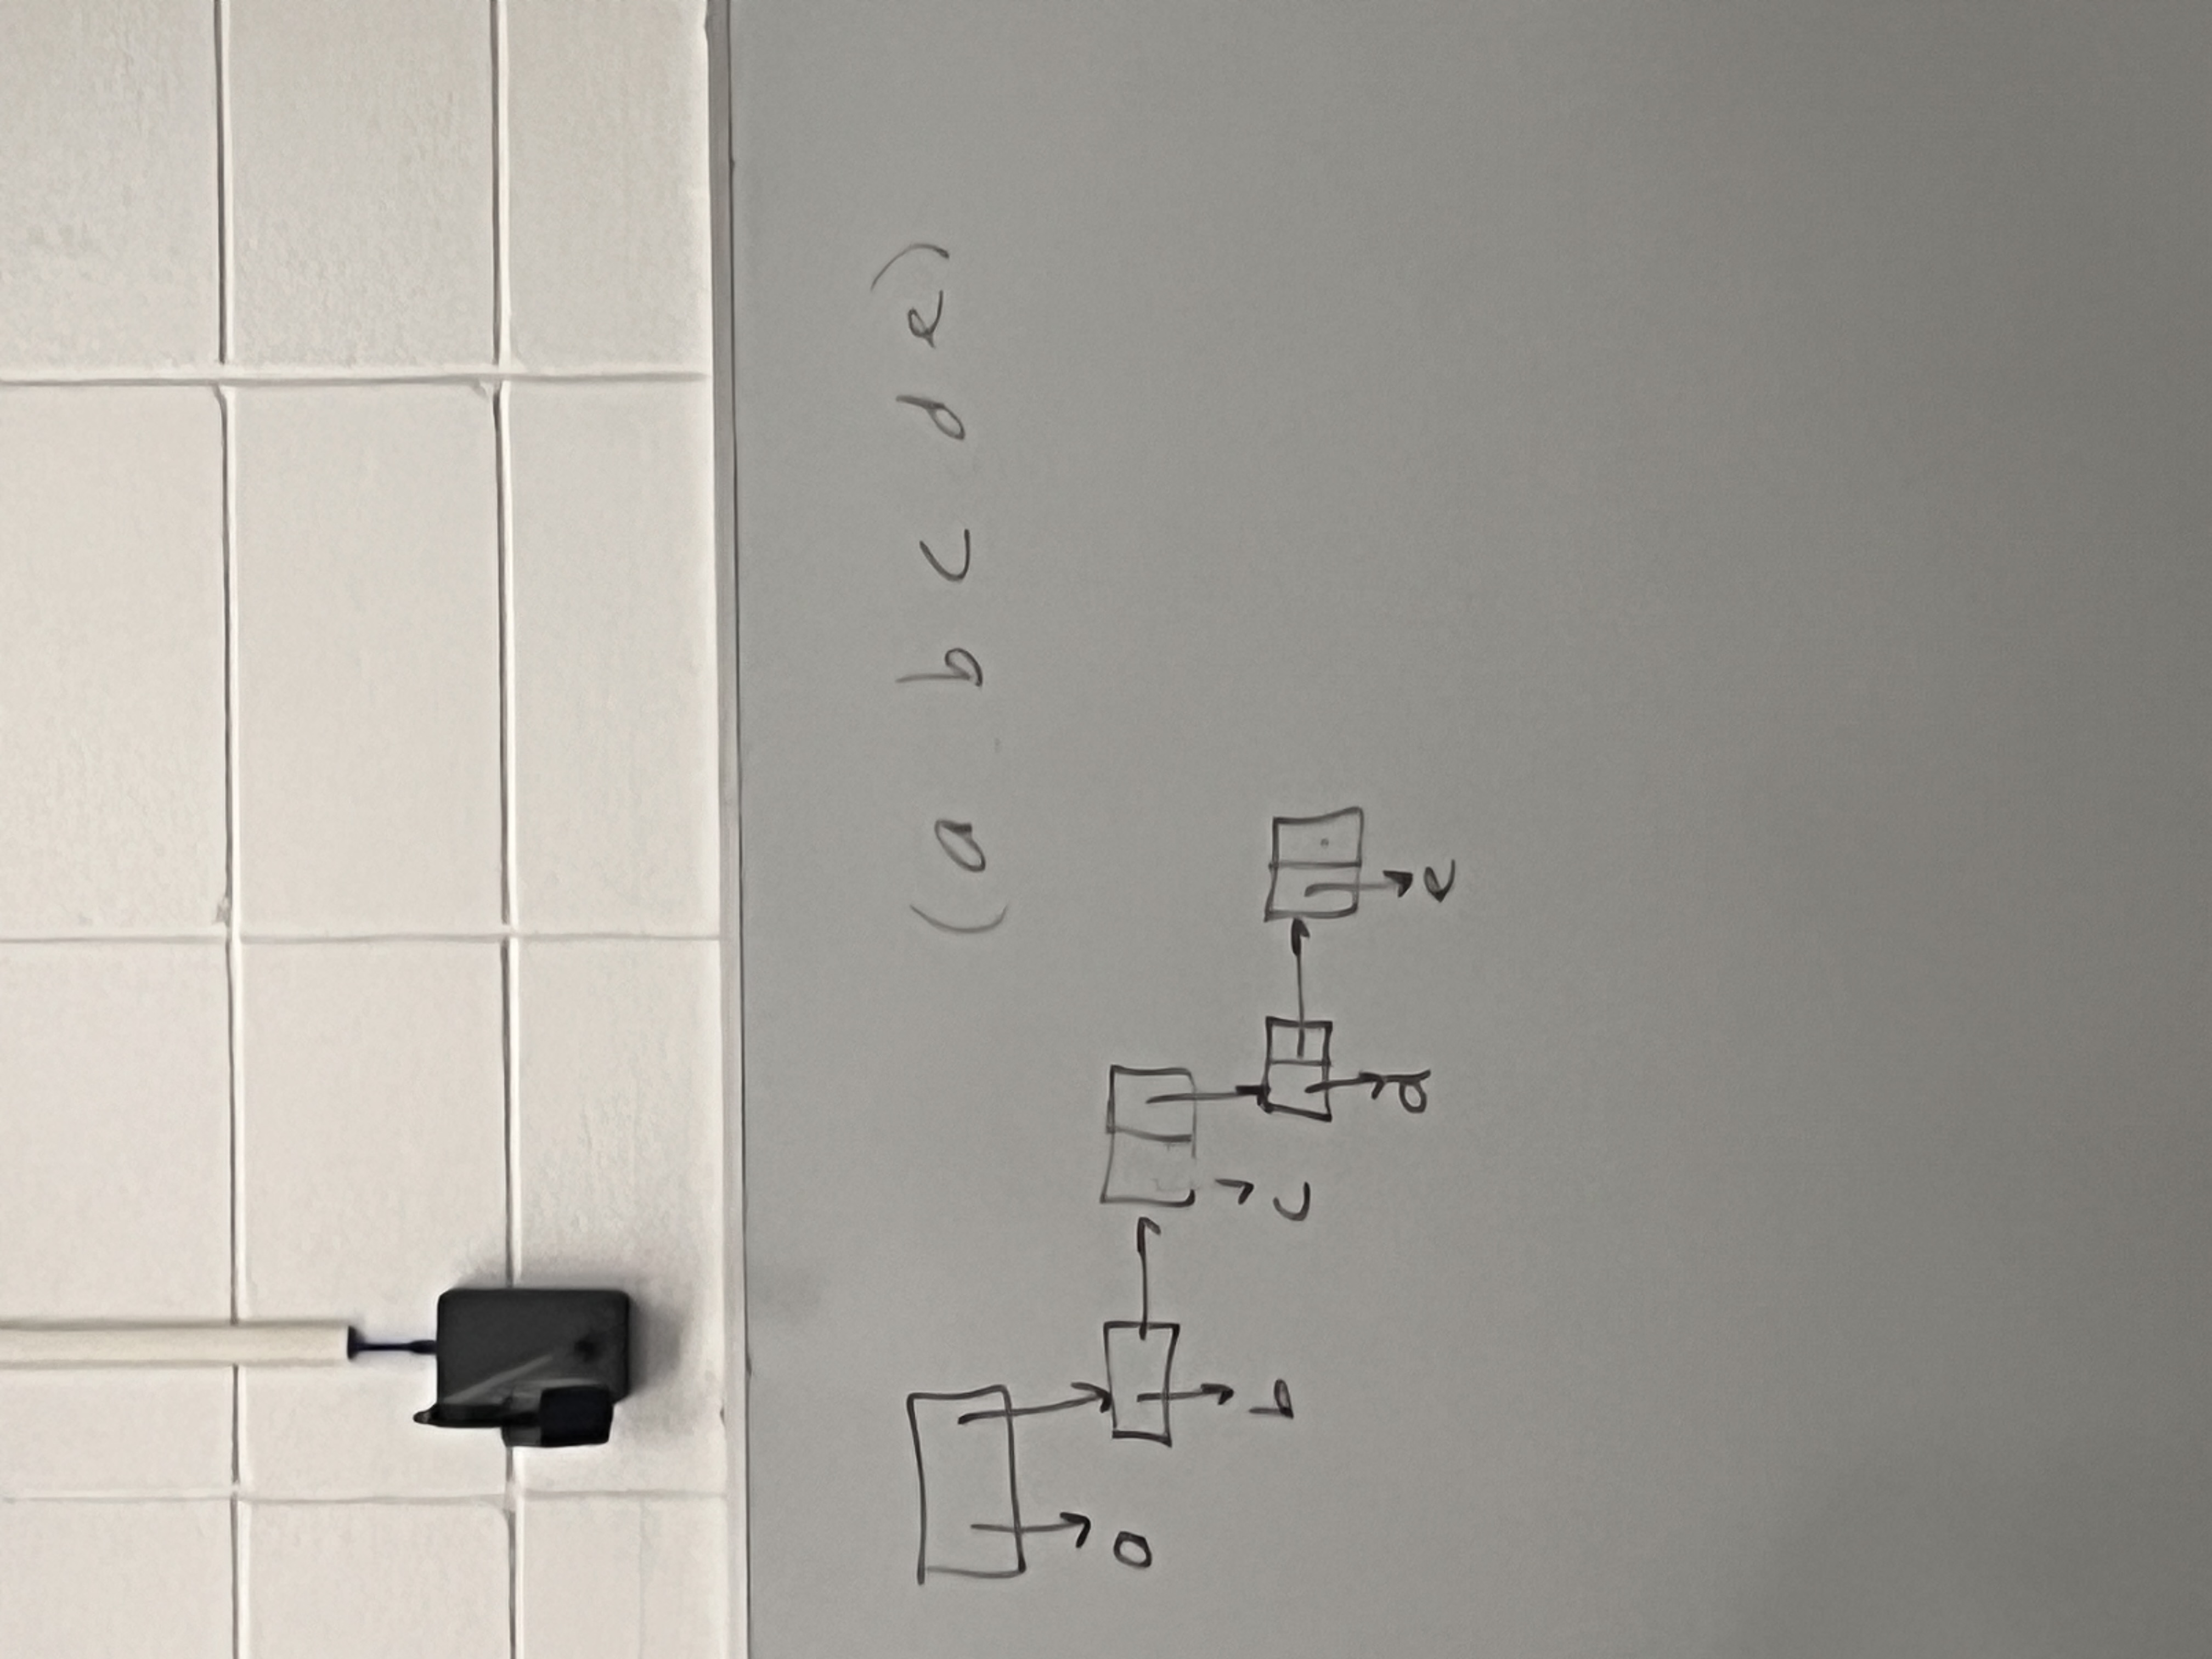 (a b c d e)
a
b
c
d
e